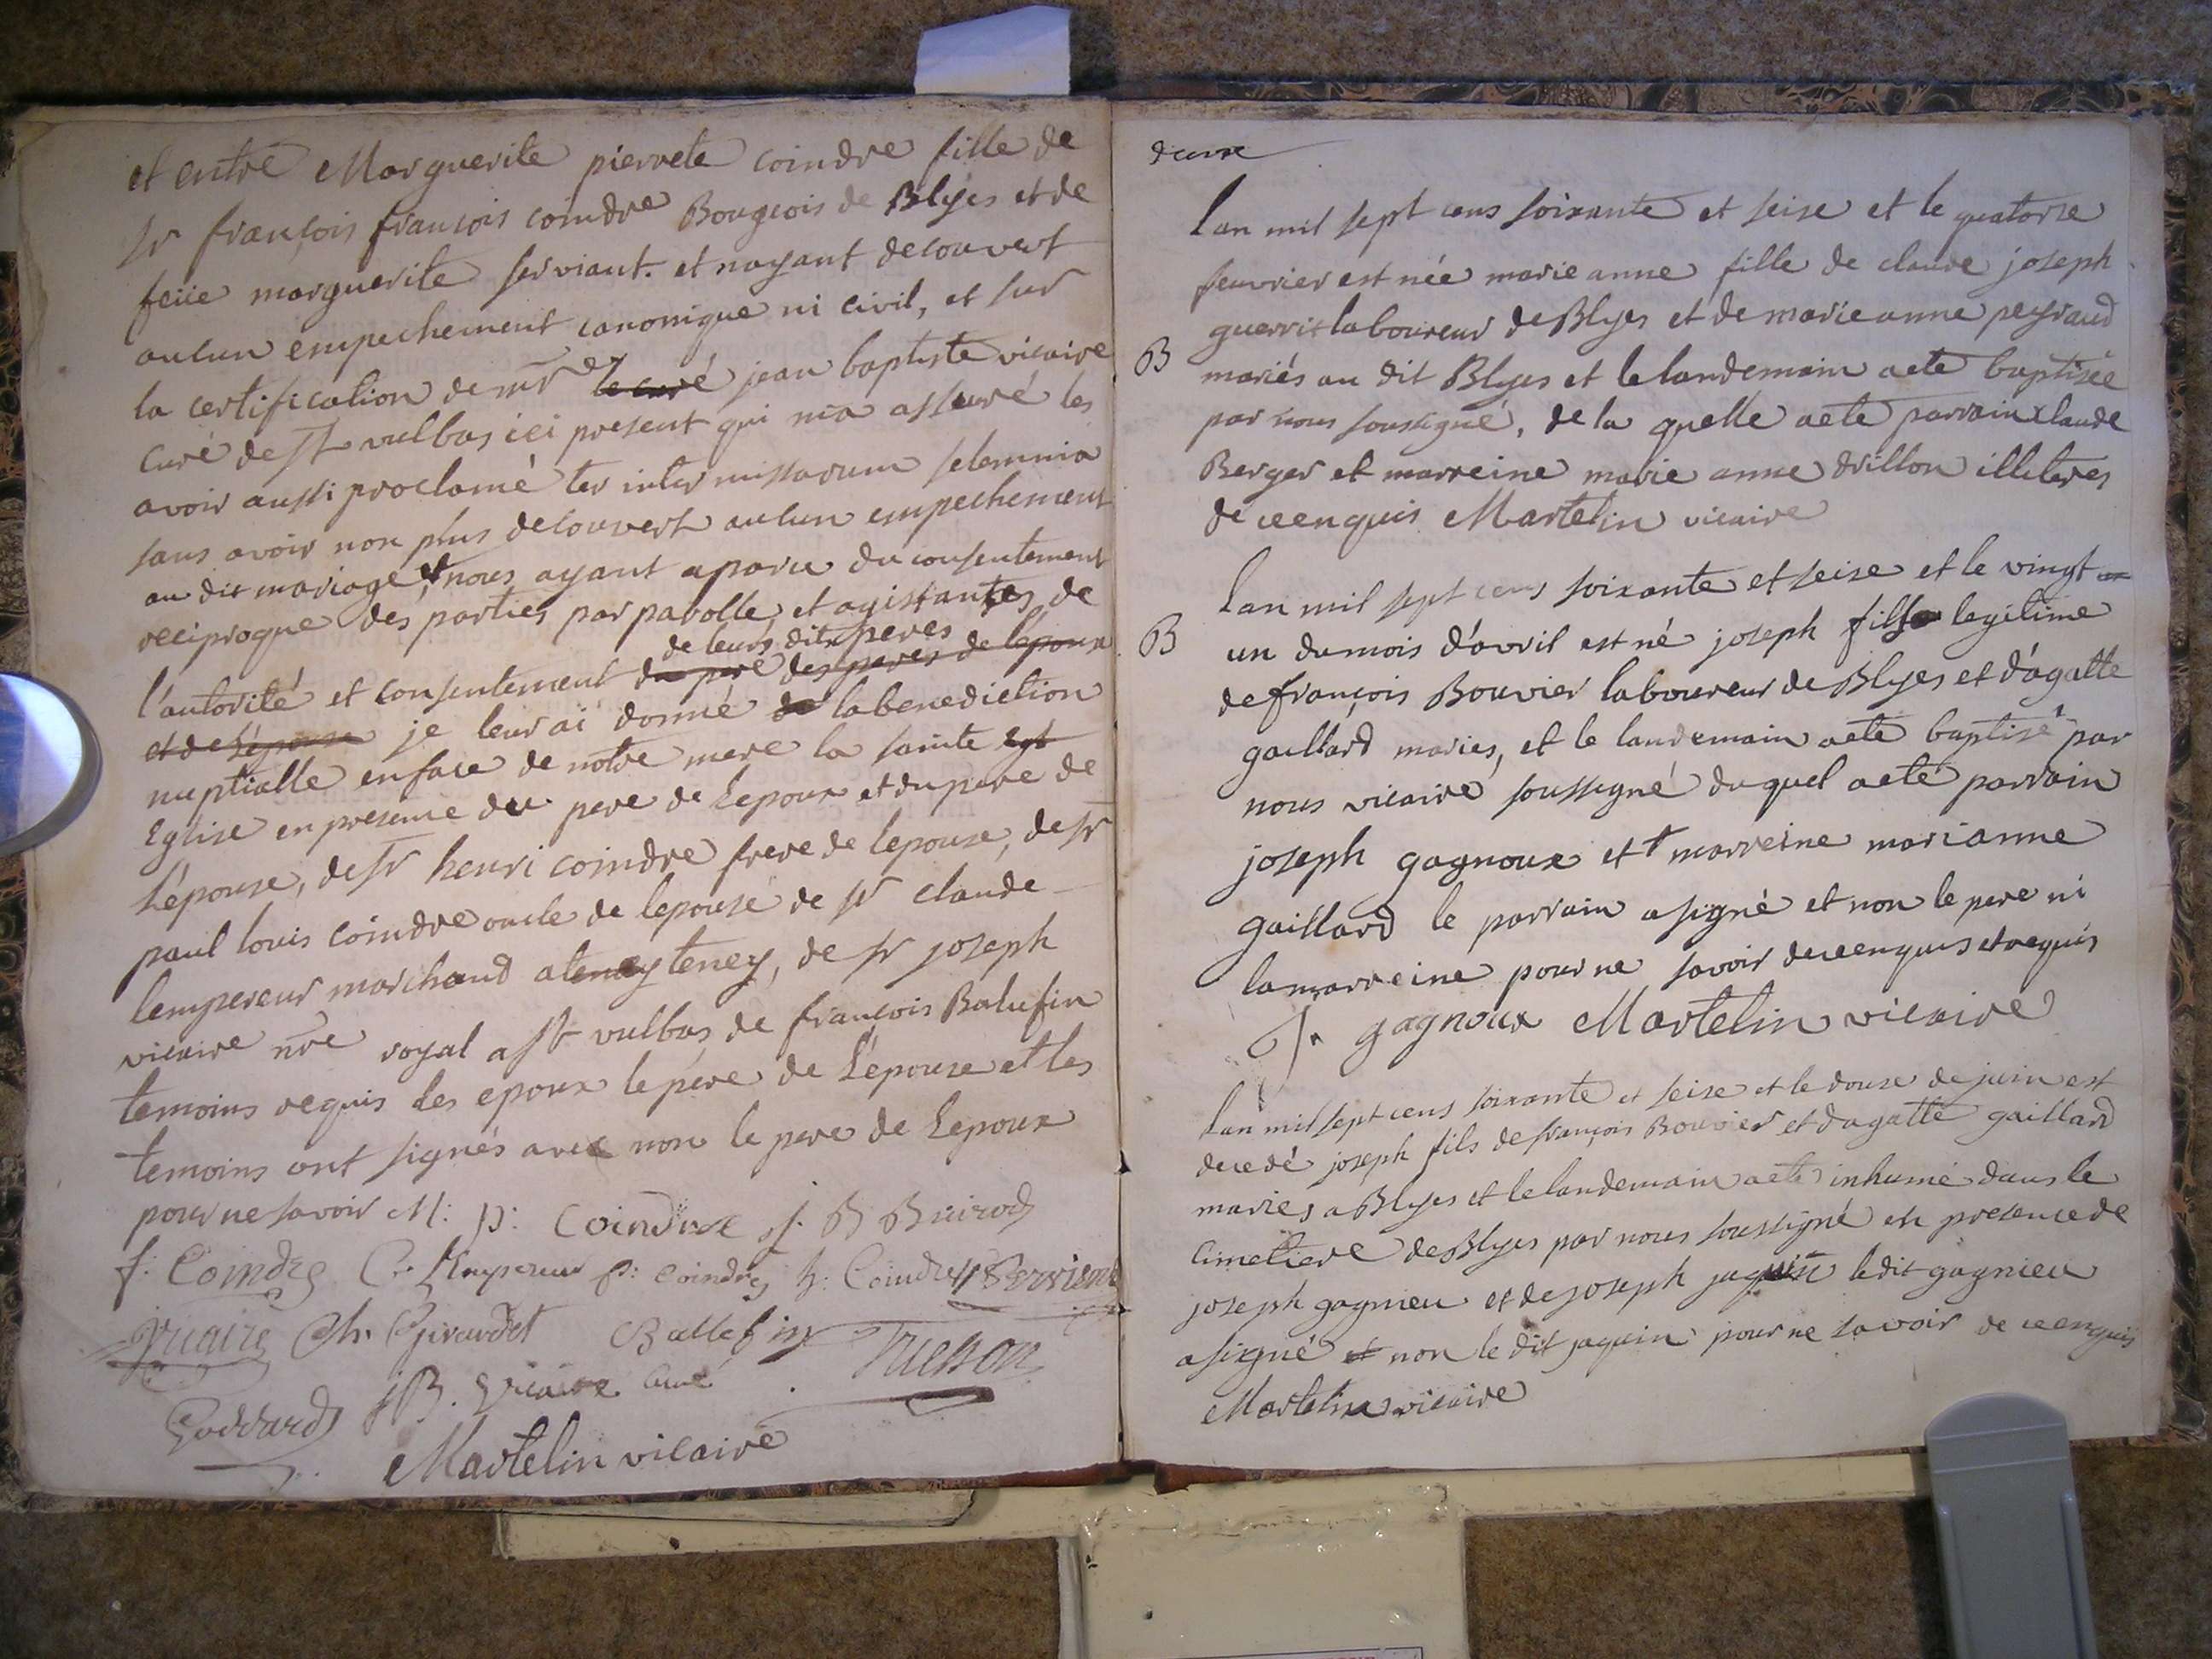 et entre Marguerite pierrete coindre fille de
sr françois françois coindre Bourgeois de Blyes et de
feüe marguerite serviant. et nayant decouvert
aucun empechement canonique ni civil, et sur
la certification de mr le curé jean baptiste vicaire
Curé de St vulbas ici present qui m'a assuré les
avoir aussi proclamé ter inter missarum solemnia
sans avoir non plus decouvert aucun empechement
au dit mariage, et nous ayant aparu du consentement
reciproque des parties par parolle, et agissantes de
de leurs dits peres
l'autorité et consentement du pere des peres de l'epoux
et de l'epouse je leur ai donné de la benediction
nuptialle en face de notre mere la sainte Egl
Eglise en presence du pere de l'epoux et du pere de
L'épouse, de sr henri coindre frere de l'epouse, de sr
paul louis coindre oncle de l'epouse de sr claude
lempereur marchand a teney teney, de sr joseph
vicaire nre royal a St vulbas, de françois Balufin
temoins requis les epoux le pere de L'épouse et les
temoins ont signés avec non le pere de Lepoux
pour ne savoir M: p: Coindre j. B
f: Coindre C. Lempereur p: coindre h: Coindre
Vicaire Ch. Girardet Ballefin
J B. Vicaire curé
Martelin vicaire
Lan mil sept cens soixante et seise et le quatorse
feuvrier est née marie anne fille de claude joseph
guerrit laboureur de Blyes et de marie anne peyraud
B
mariés au dit Blyes et le landemain a eté baptisée
par nous soussigné, de la quelle a eté parrain claude
Berger et marreine marie anne drillon illiteres
de ce enquis Martelin vicaire
Lan mil sept cens soixante et seise et le vingt un
B
un du mois d'avril est né joseph fils legitime
de françois Bouvier laboureur de Blyes et d'agatte
gaillard mariés, et le landemain a eté baptisé par
nous vicaire soussigné du quel a eté parrain
joseph gagnoux et marreine marianne
gaillard le parrain a signé et non le pere ni
la marreine pour ne savoir de ce enquis et requis
J. gagnoux Martelin vicaire
Lan mil sept cens soixante et seise et le douse de juin est
decedé joseph fils de françois Bouvier et d'agatte gaillard
mariés a Blyes et le landemain a eté inhumé dans le
Cimetiere de Blyes par nous soussigné en presence de
joseph gagnieu et de joseph jaquin le dit gagnieu
a signé et non le dit jaquin pour ne savoir de ce enquis
Martelin vicaire